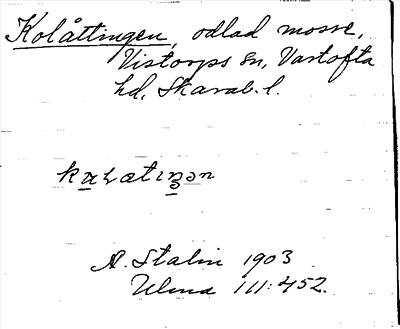 Kolåttingen, odlad mosse,
Vistorps sn, Vartofta
hd, Skarab. l.
A. Stalin 1903
Ulma 111:452.